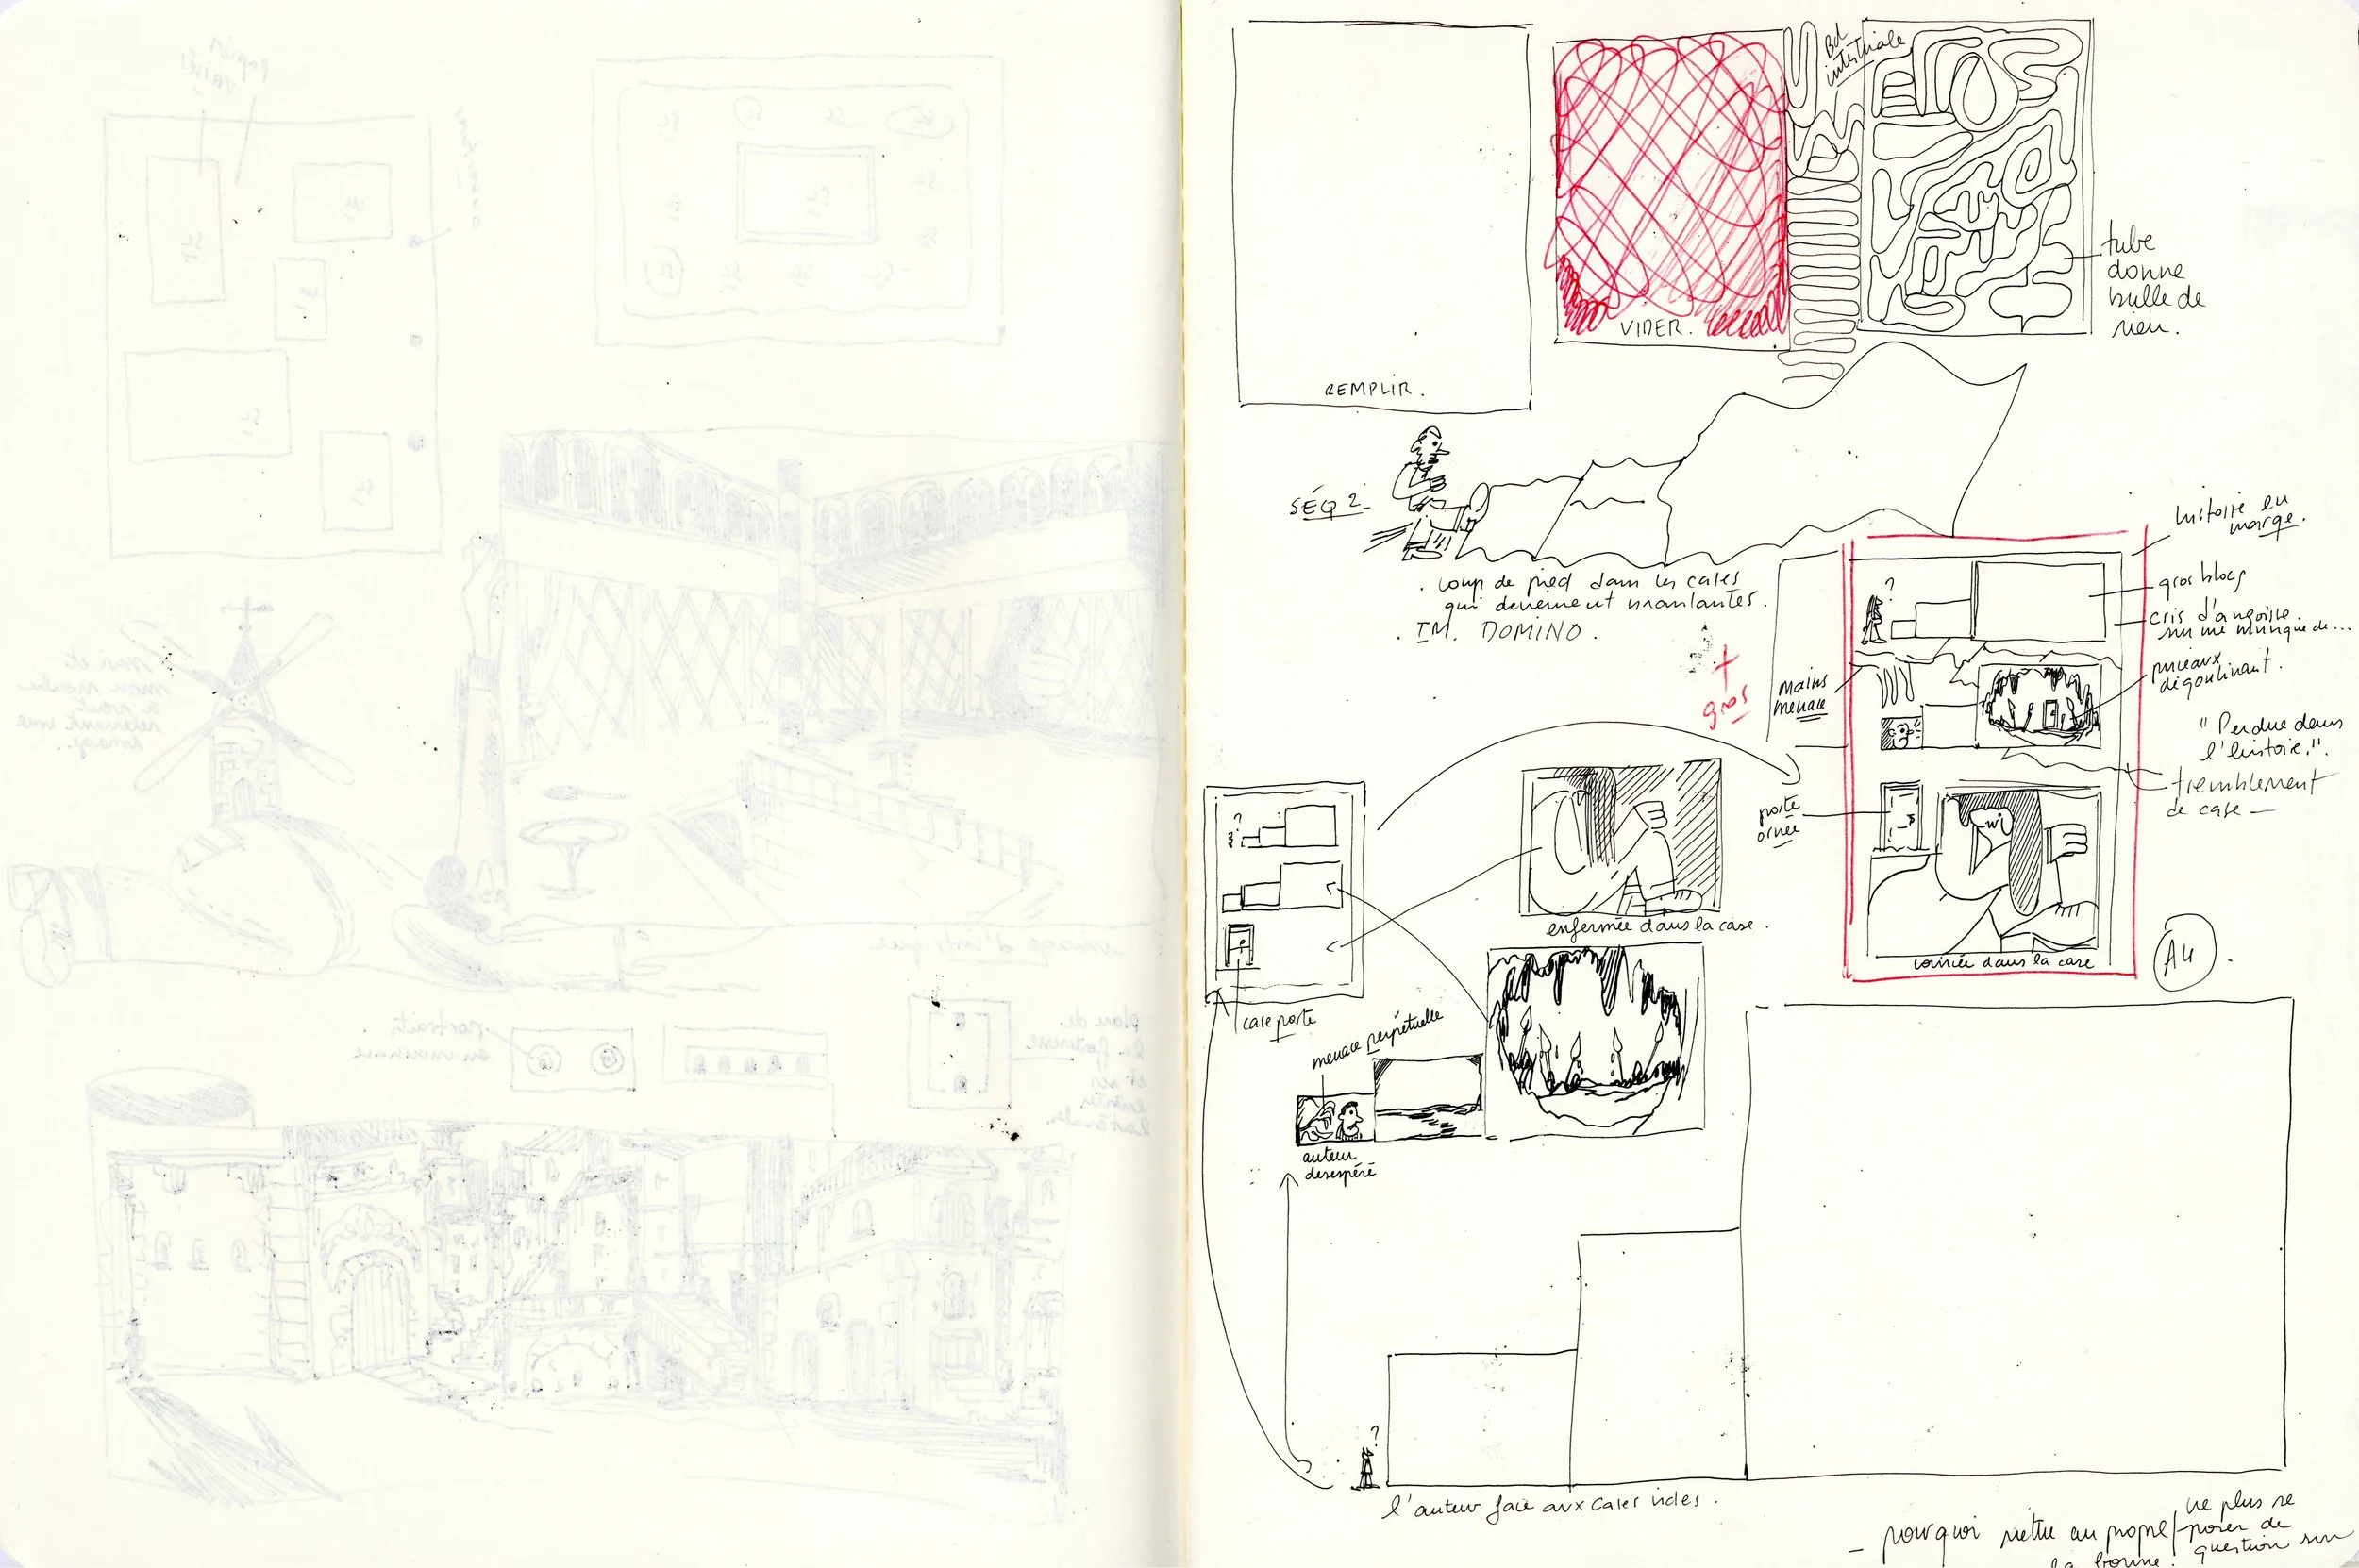 REMPLIR.
VIDER.
Bd
intestinale
tube
donne
bulle de
rien.
SÉQ 2.
. coup de pied dans les cases
qui deviennent branlantes.
. IM. DOMINO.
+
gros
histoire en
marge.
gros blocs
cris d'angoisse
sur une musique de...
pinceaux
dégoulinant.
"Perdue dans
l'histoire."
tremblement
de case —
?
mains
menace
porte
ornée
coincée dans la case
A4
?
case porte
enfermée dans la case.
menace perpétuelle
auteur
desespéré
?
l'auteur face aux cases vides.
— pourquoi mettre au propre
la bonne.
ne plus se
poser de
question sur
papier
moi et
mon
à
image d'
portraits
en
plan de
la
et